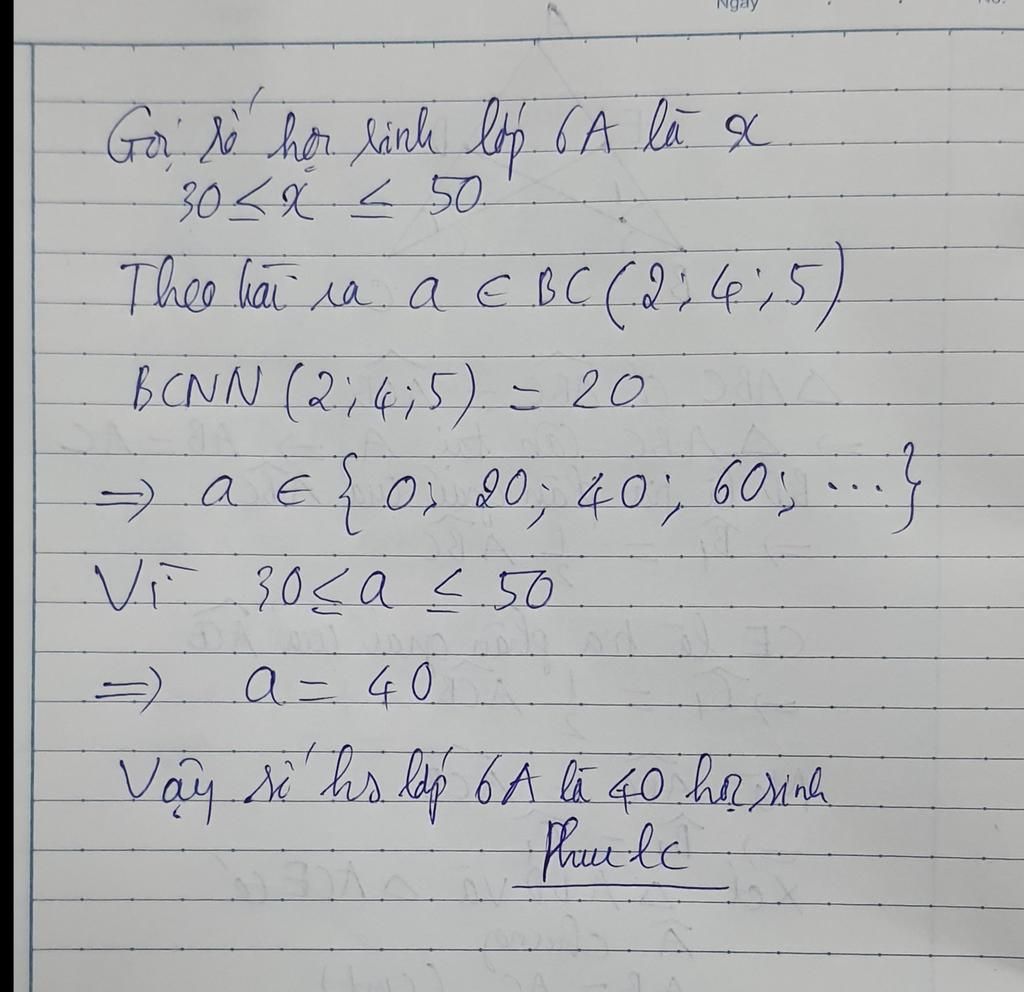 Ngày
No.
Gọi số học sinh lớp 6A là x
30 ≤ x ≤ 50
Theo bài ra a ∈ BC(2; 4; 5)
BCNN (2; 4; 5) = 20
=> a ∈ {0; 20; 40; 60; ...}
Vì 30 ≤ a ≤ 50
=> a = 40
Vậy số hs lớp 6A là 40 học sinh